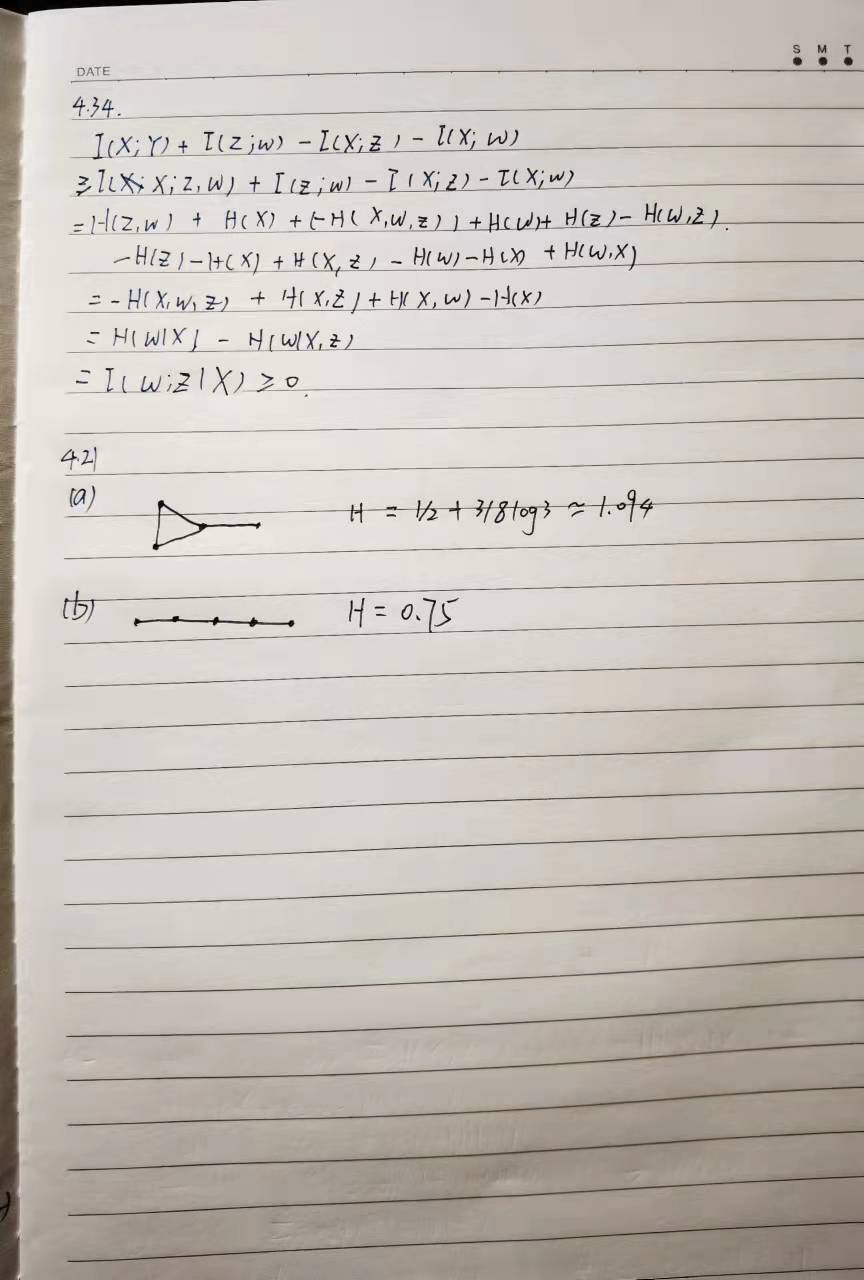 S M T
DATE
4.34.
I(X;Y) + I(Z;W) - I(X;Z) - I(X;W)
≥ I(X;Z,W) + I(Z;W) - I(X;Z) - I(X;W)
= H(Z,W) + H(X) + (-H(X,W,Z)) + H(W) + H(Z) - H(W,Z).
- H(Z) - H(X) + H(X,Z) - H(W) - H(X) + H(W,X)
= - H(X,W,Z) + H(X,Z) + H(X,W) - H(X)
= H(W|X) - H(W|X,Z)
= I(W;Z|X) ≥ 0.
4.21
(a) H = 1/2 + 3/8 log3 ≈ 1.094
(b) H = 0.75